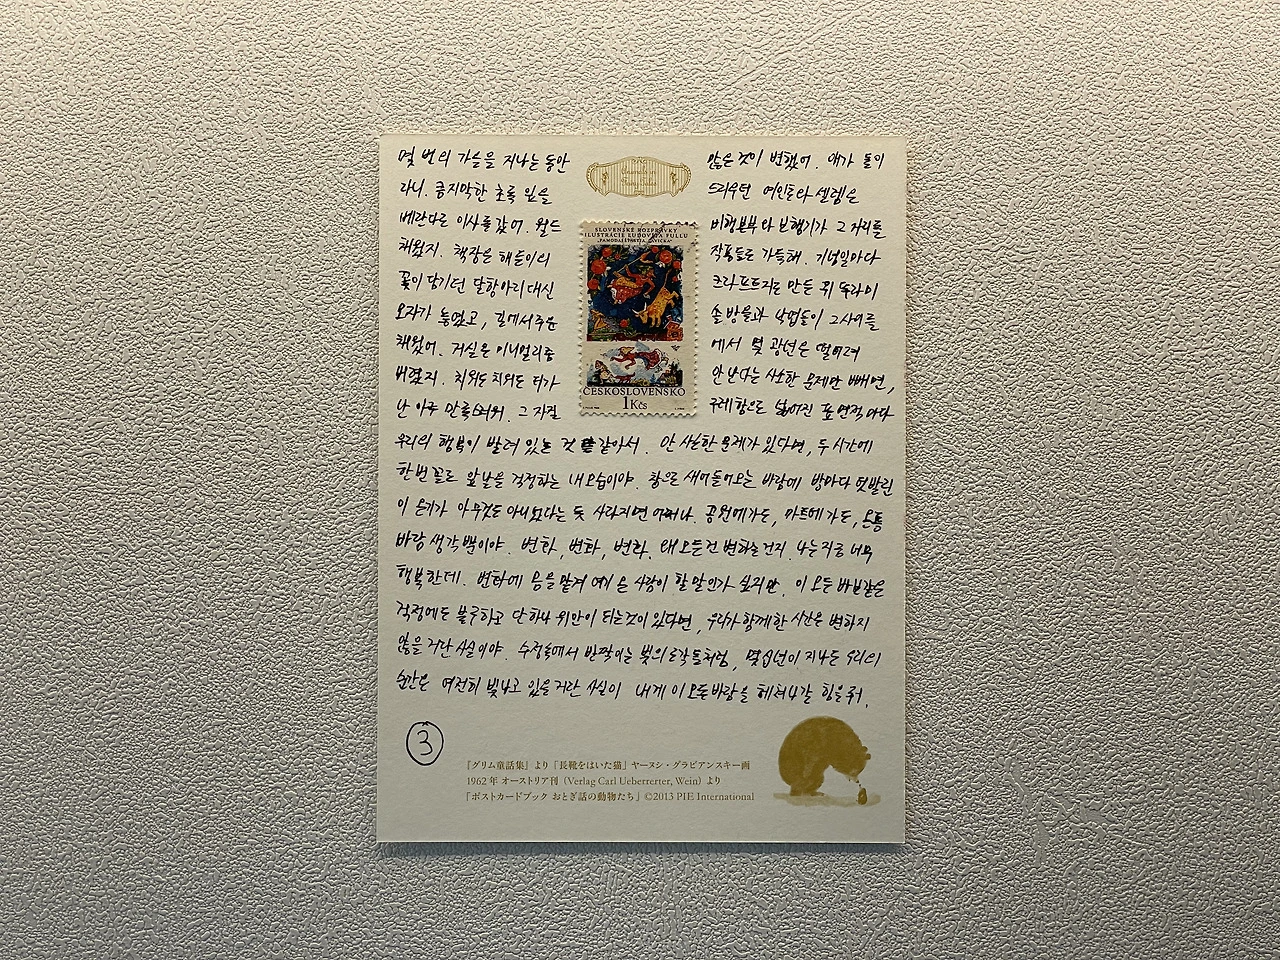 몇 번의 가을을 지나는 동안 많은 것이 변했어. 애가 둘이
라니. 큼지막한 초록 잎을 드리우던 여인초와 셀렘은
베란다로 이사를 갔어. 월드 비행본부와 보행기가 그 자리를
채웠지. 책장은 해들이의 작품들로 가득해. 기념일마다
꽃이 담기던 달항아리 대신 크라프트지로 만든 뀌뚜라미
모자가 놓였고, 길에서 주운 솔방울과 낙엽들이 그 사이를
채웠어. 거실은 미니멀리즘에서 몇 광년은 멀어져
버렸지. 치워도 치워도 티가 안 난다는 사소한 문제만 빼면,
난 아주 만족스러워. 그 자질구레함으로 넓어진 표면적마다
우리의 행복이 발려 있는 것 같아서. 안 사소한 문제가 있다면, 두 시간에
한 번 꼴로 앞날을 걱정하는 내 모습이야. 창으로 새어들어오는 바람에 방마다 덧발린
이 온기가 아무것도 아니었다는 듯 사라지면 어쩌나. 공원에 가도, 마트에 가도, 온통
바람 생각뿐이야. 변화, 변화, 변화. 왜 모든 건 변하는 건지. 나는 지금 너무
행복한데. 변화에 몸을 맡겨 여기 온 사람이 할 말인가 싶지만. 이 모든 바보같은
걱정에도 불구하고 단 하나 위안이 되는 것이 있다면, 우리가 함께한 시간은 변하지
않을 거란 사실이야. 수정 속에서 반짝이는 빛의 조각들처럼, 몇십년이 지나도 우리의
순간은 여전히 빛나고 있을 거란 사실이 내게 이 모든 바람을 헤쳐나갈 힘을 줘.
SLOVENSKÉ ROZPRÁVKY
ILUSTRÁCIE ĽUDOVÍTA FULLU
ČESKOSLOVENSKO
1 Kčs
3
『グリム童話集』より「長靴をはいた猫」ヤーヌシ・グラビアンスキー画
1962年 オーストリア刊（Verlag Carl Ueberrerter, Wein）より
「ポストカードブック おとぎ話の動物たち」©2013 PIE International